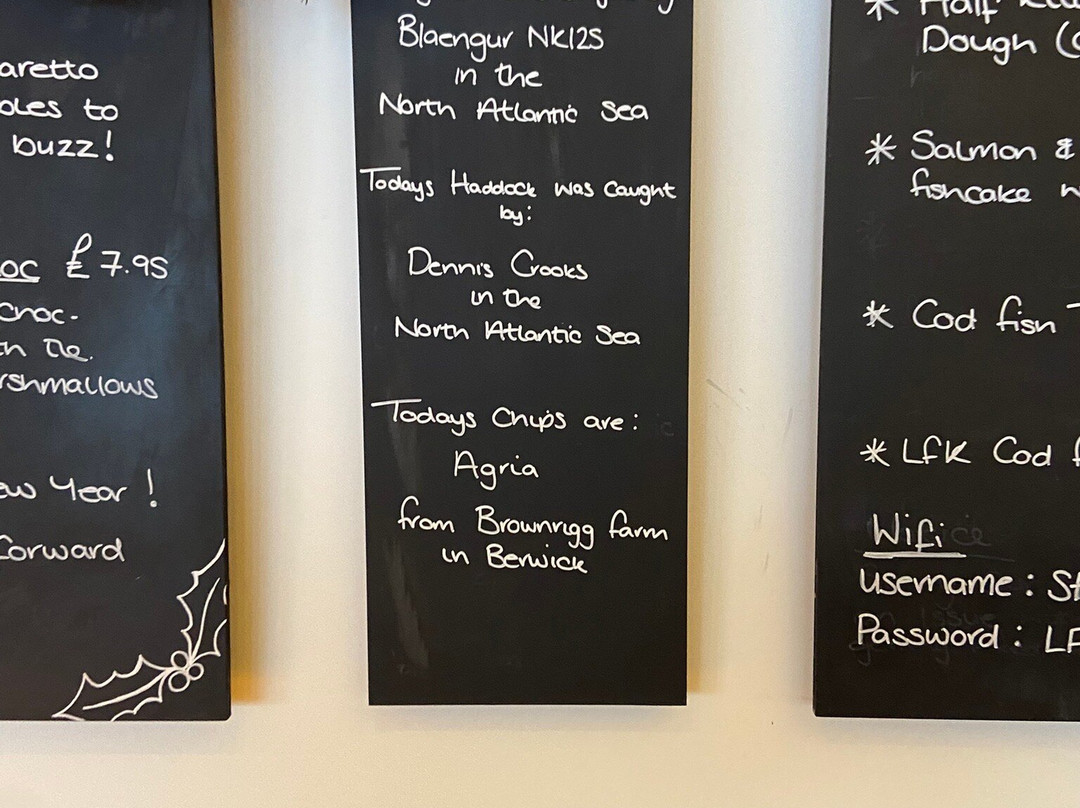 aretto
oles to
buzz!
oc £7.95
choc.
th the.
rshmallows
ew Year!
forward
Blaengur NK125
in the
North Atlantic Sea
Todays Haddock was caught
by:
Dennis Crooks
in the
North Atlantic Sea
Todays Chips are:
Agria
from Brownrigg farm
in Berwick
* Half
Dough (
* Salmon &
fishcake w
* Cod fish T
* LFK Cod f
Wifi
username: St
Password: LF